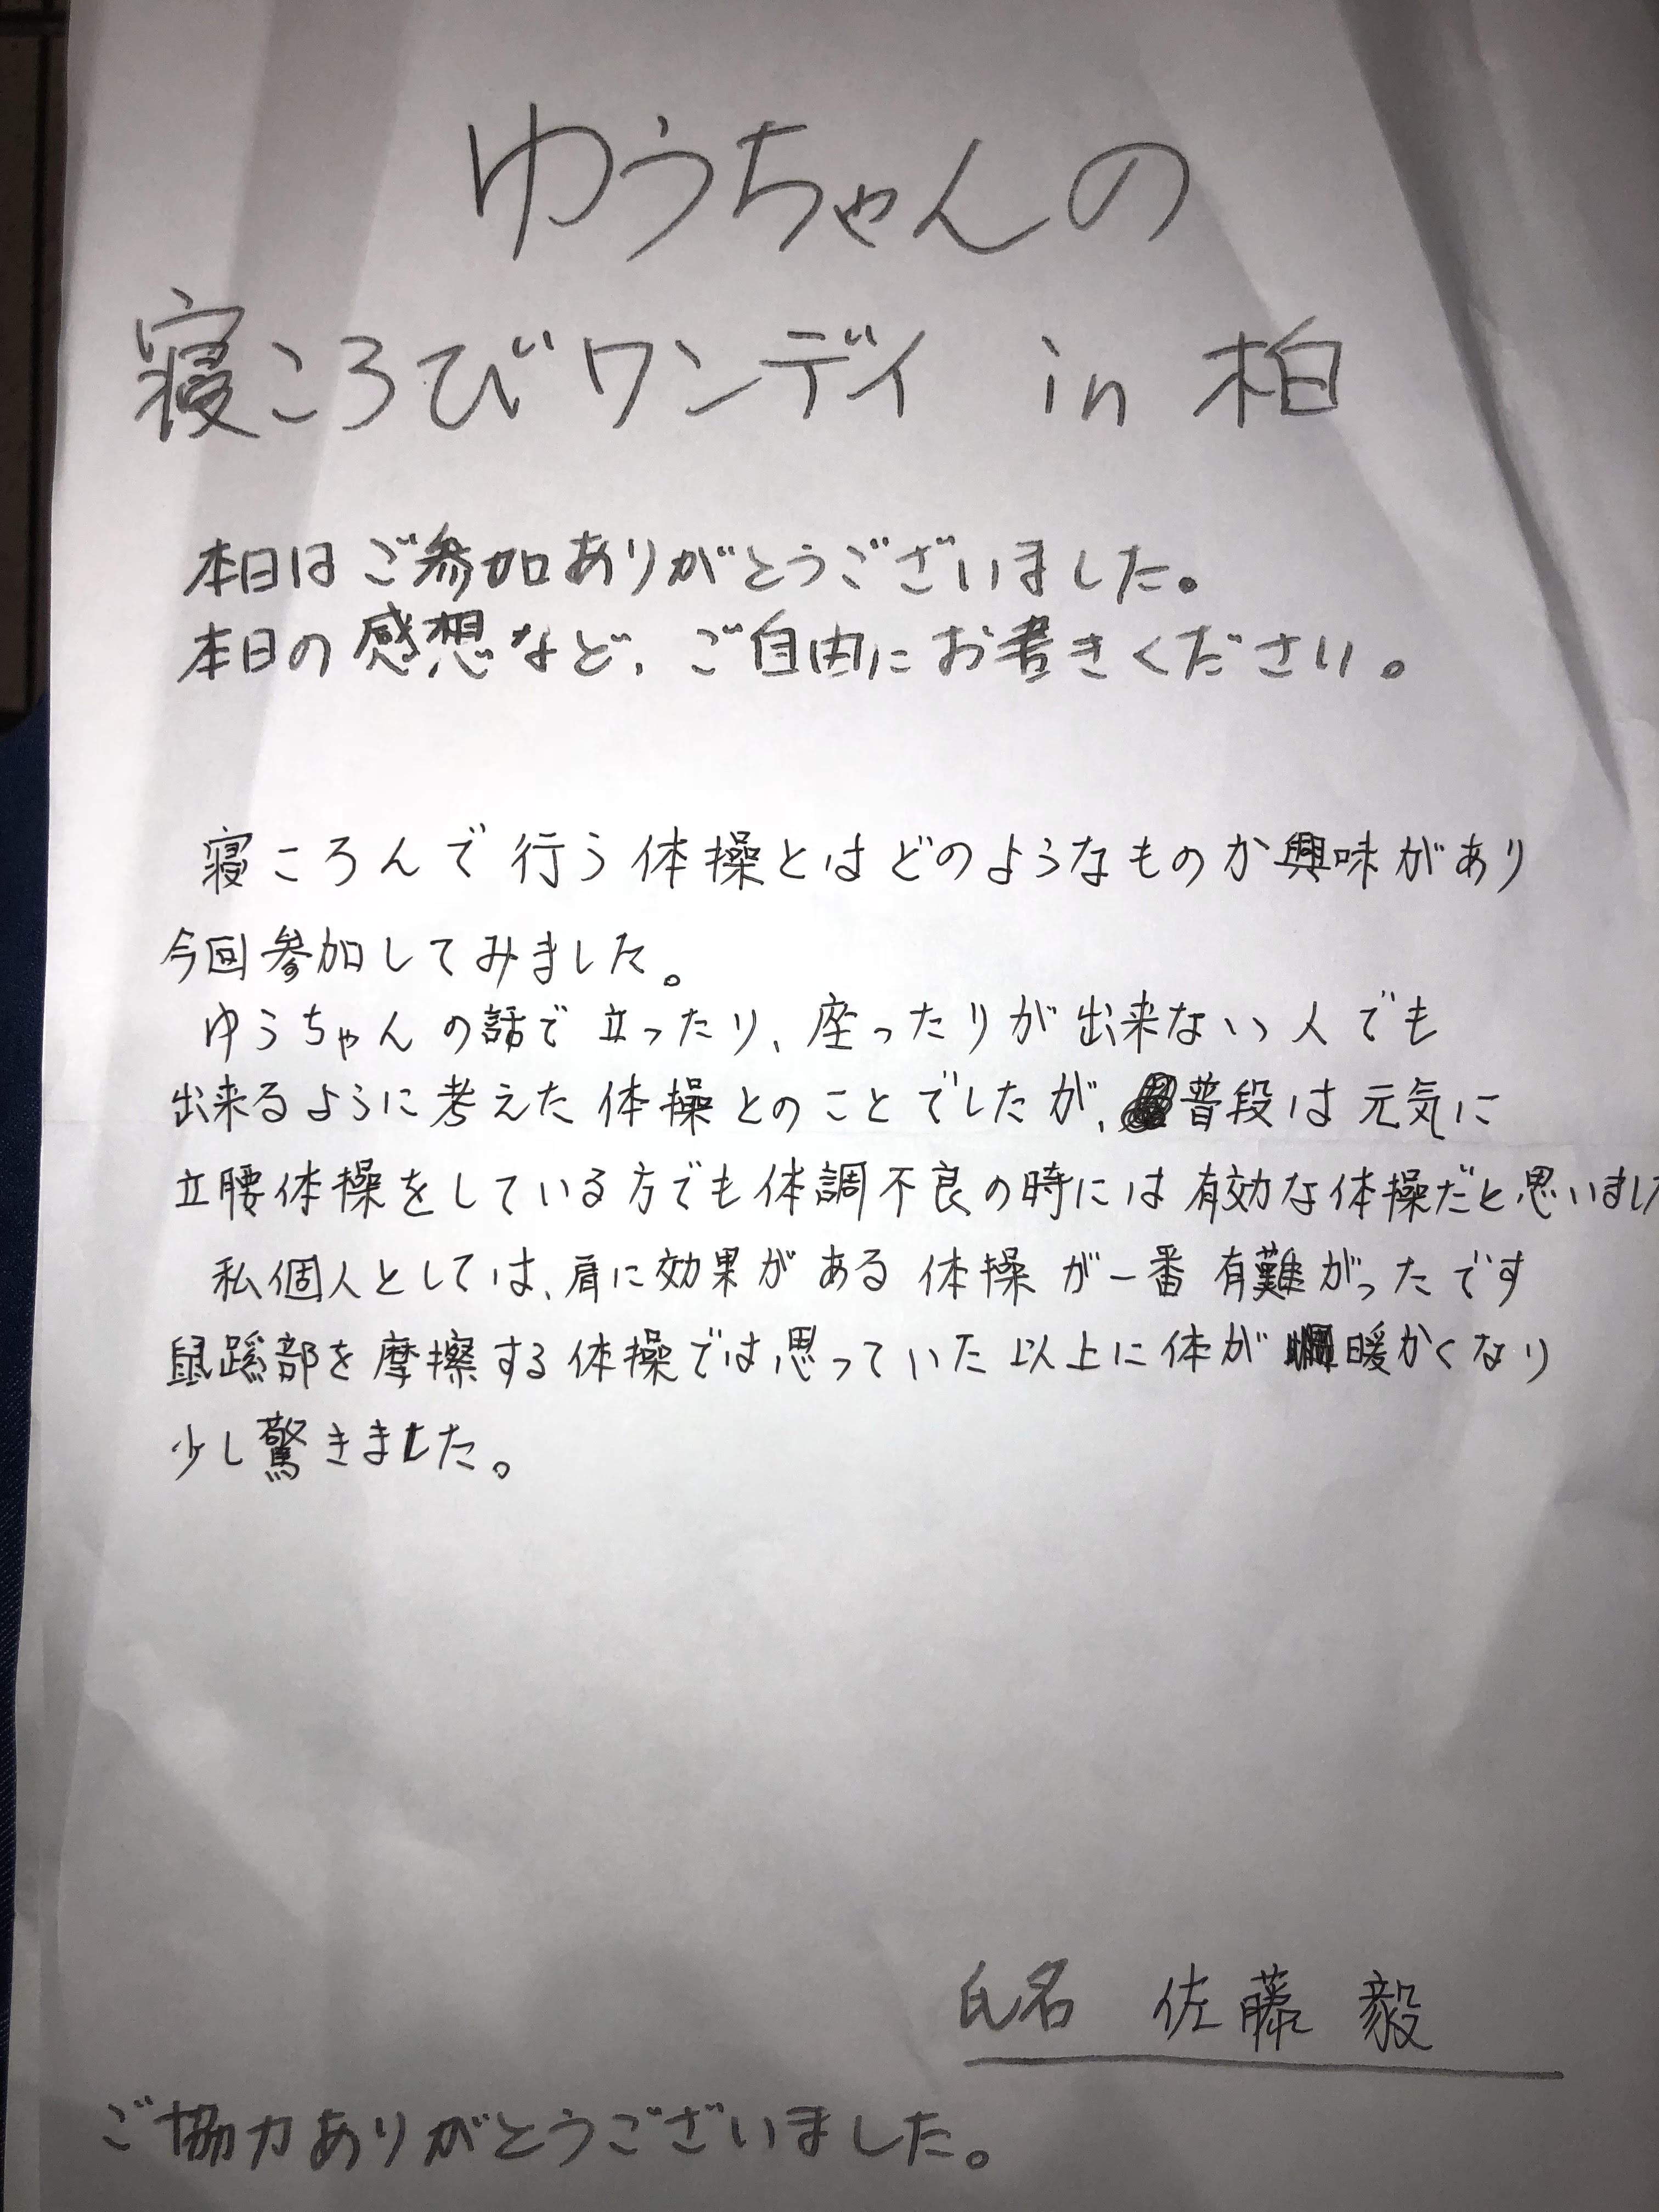 ゆうちゃんの
寝ころびワンデイ in 柏
本日はご参加ありがとうございました。
本日の感想など、ご自由にお書きください。
寝ころんで行う体操とはどのようなものか興味があり
今回参加してみました。
ゆうちゃんの話で立ったり、座ったりが出来ない人でも
出来るように考えた体操とのことでしたが、普段は元気に
立腰体操をしている方でも体調不良の時には有効な体操だと思いました
私個人としては、肩に効果がある体操が一番有難がったです
鼠蹊部を摩擦する体操では思っていた以上に体が暖かくなり
少し驚きました。
氏名 佐藤 毅
ご協力ありがとうございました。